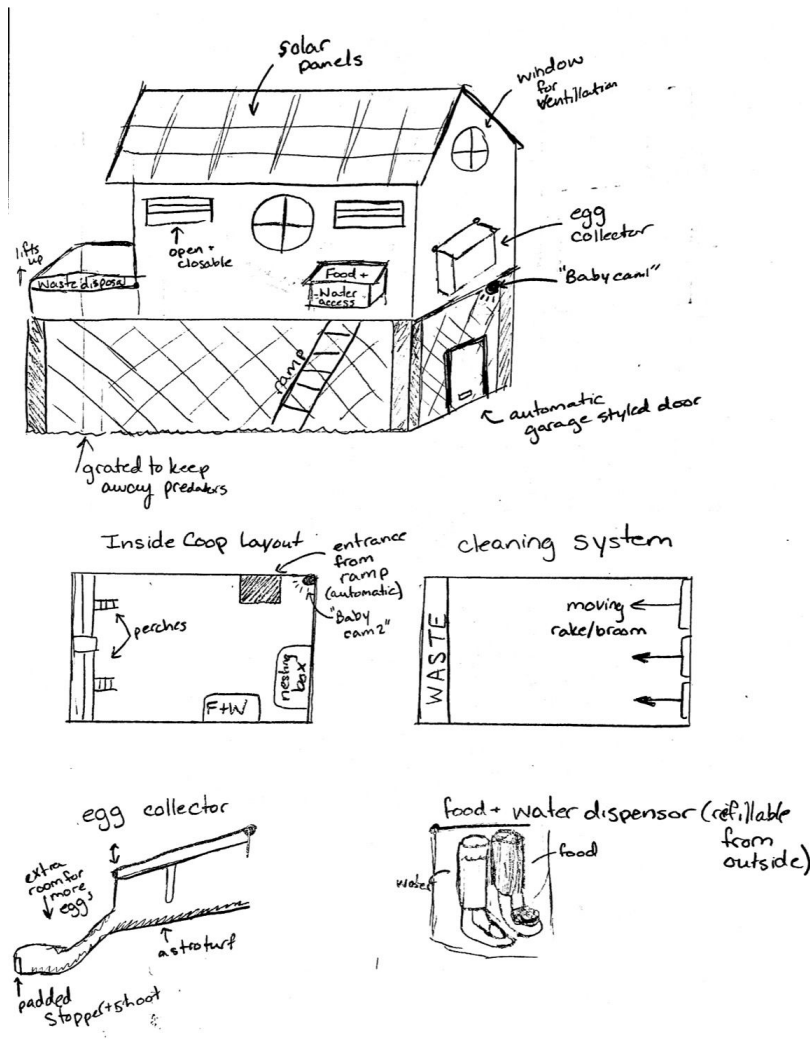 solar
panels
window
for
ventillation
egg
collector
"Baby cam1"
lifts
up
waste disposal
open +
closable
Food +
Water
access
ramp
automatic
garage styled door
grated to keep
away predators
Inside Coop Layout
entrance
from
ramp
(automatic)
"Baby
cam2"
perches
nesting
box
F+W
cleaning system
WASTE
moving
rake/broom
egg collector
extra
room for
more
eggs
astroturf
padded
stopper+shoot
food + water dispensor (refillable
from
outside)
water
food